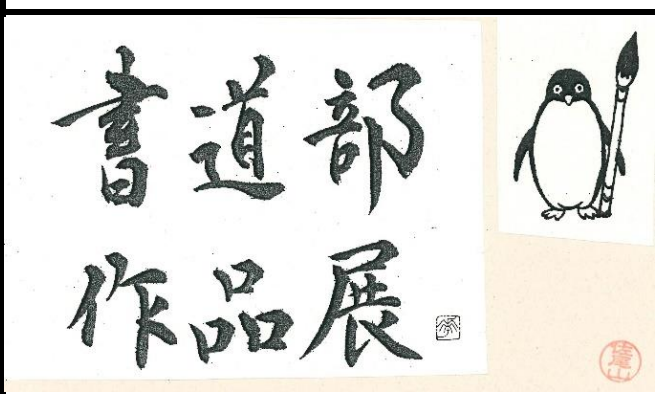 書道部
作品展